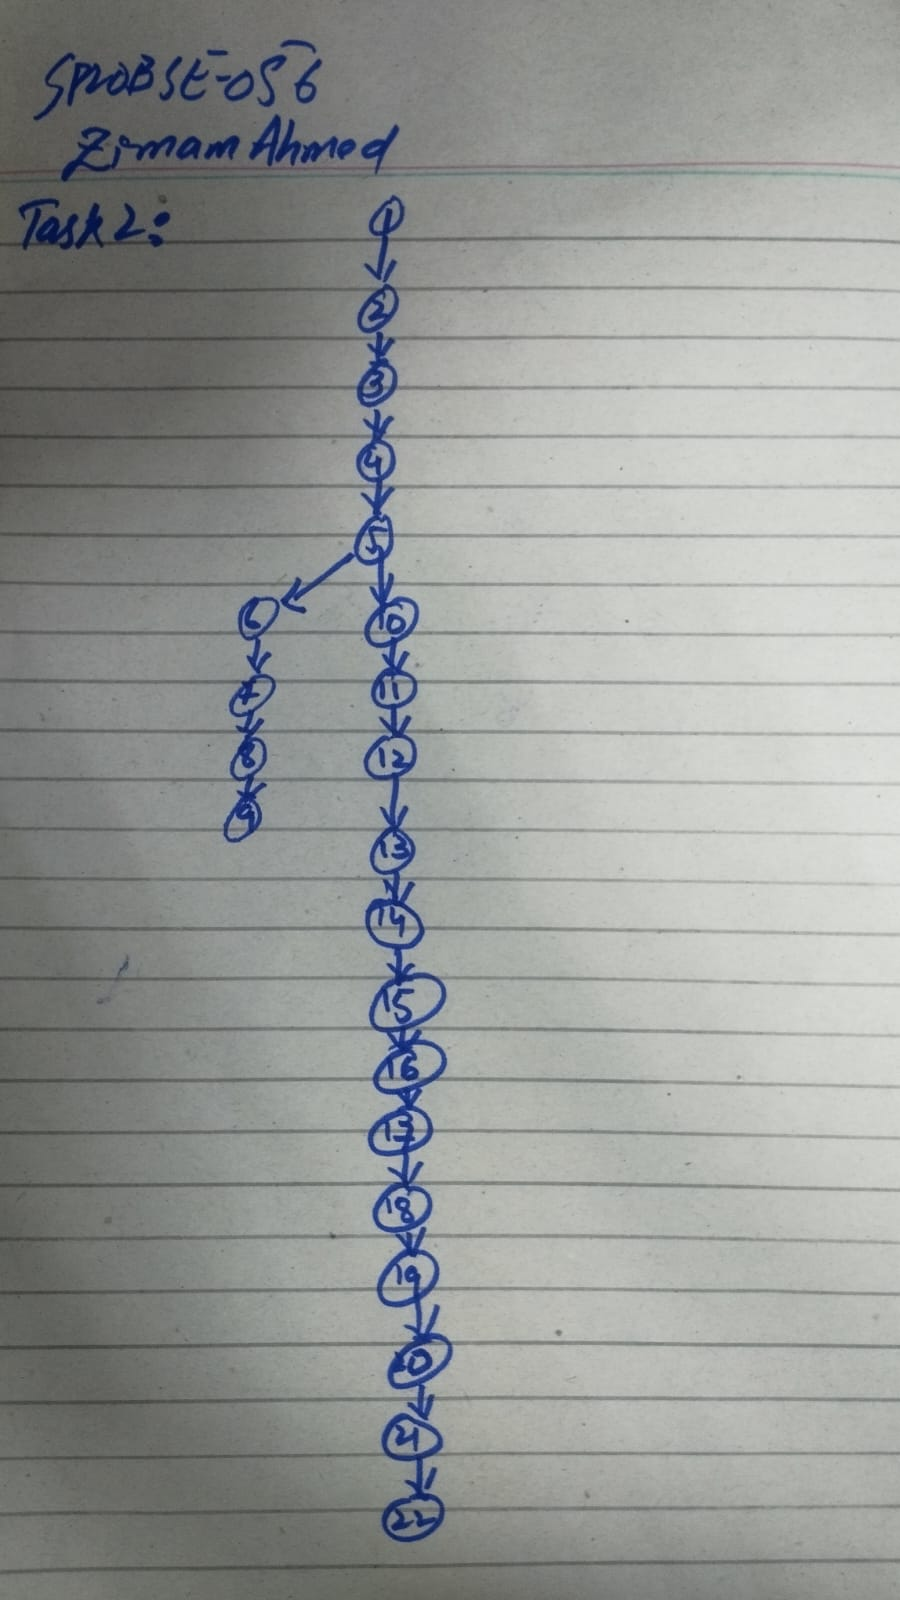 SP20BSE-056
Zimam Ahmed
Task 2:
1
2
3
4
5
6 10
7 11
8 12
9 13
14
15
16
17
18
19
20
21
22